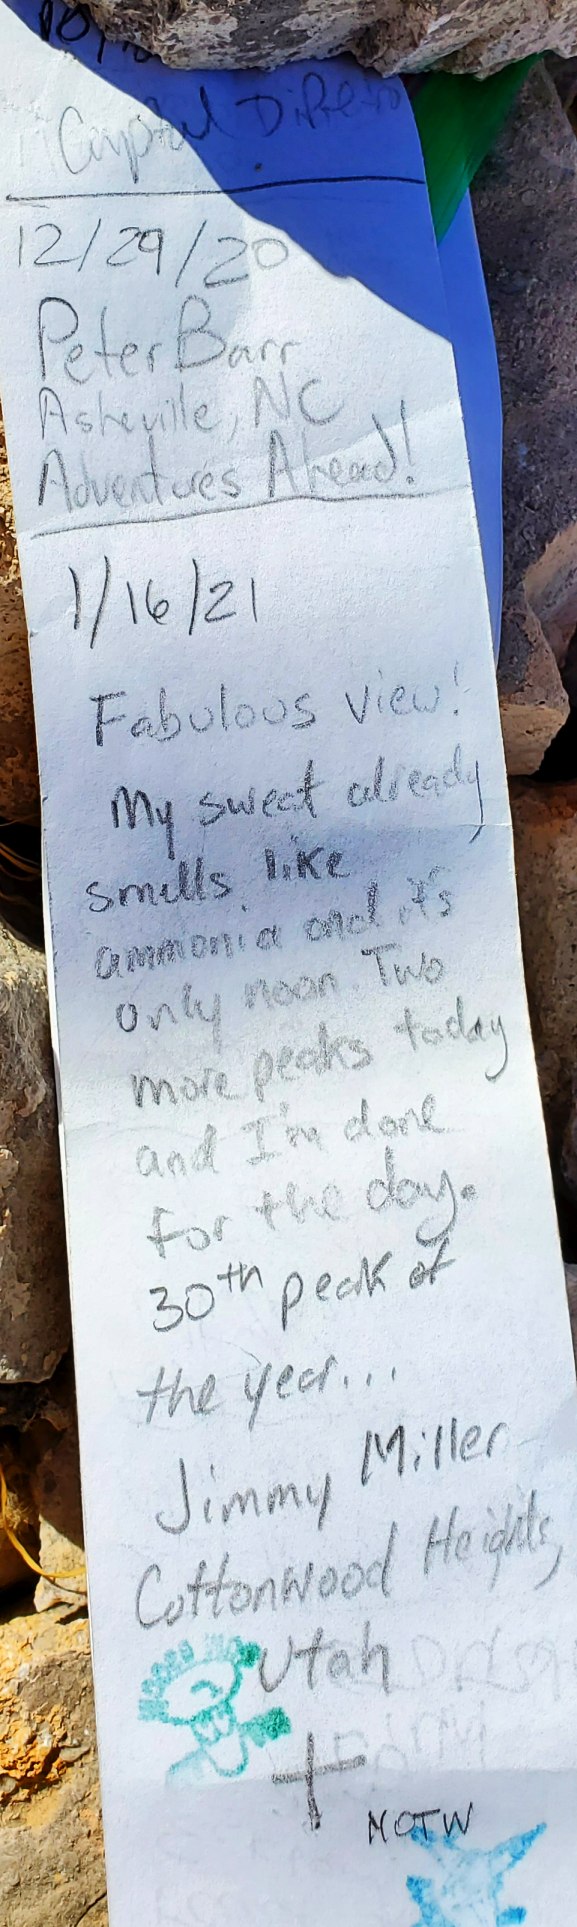 12/29/20
Peter Barr
Asheville, NC
Adventures Ahead!
1/16/21
Fabulous view!
My sweat already
smells like
ammonia and it's
only noon. Two
more peaks today
and I'm done
for the day.
30th peak of
the year...
Jimmy Miller
Cottonwood Heights,
Utah
NOTW